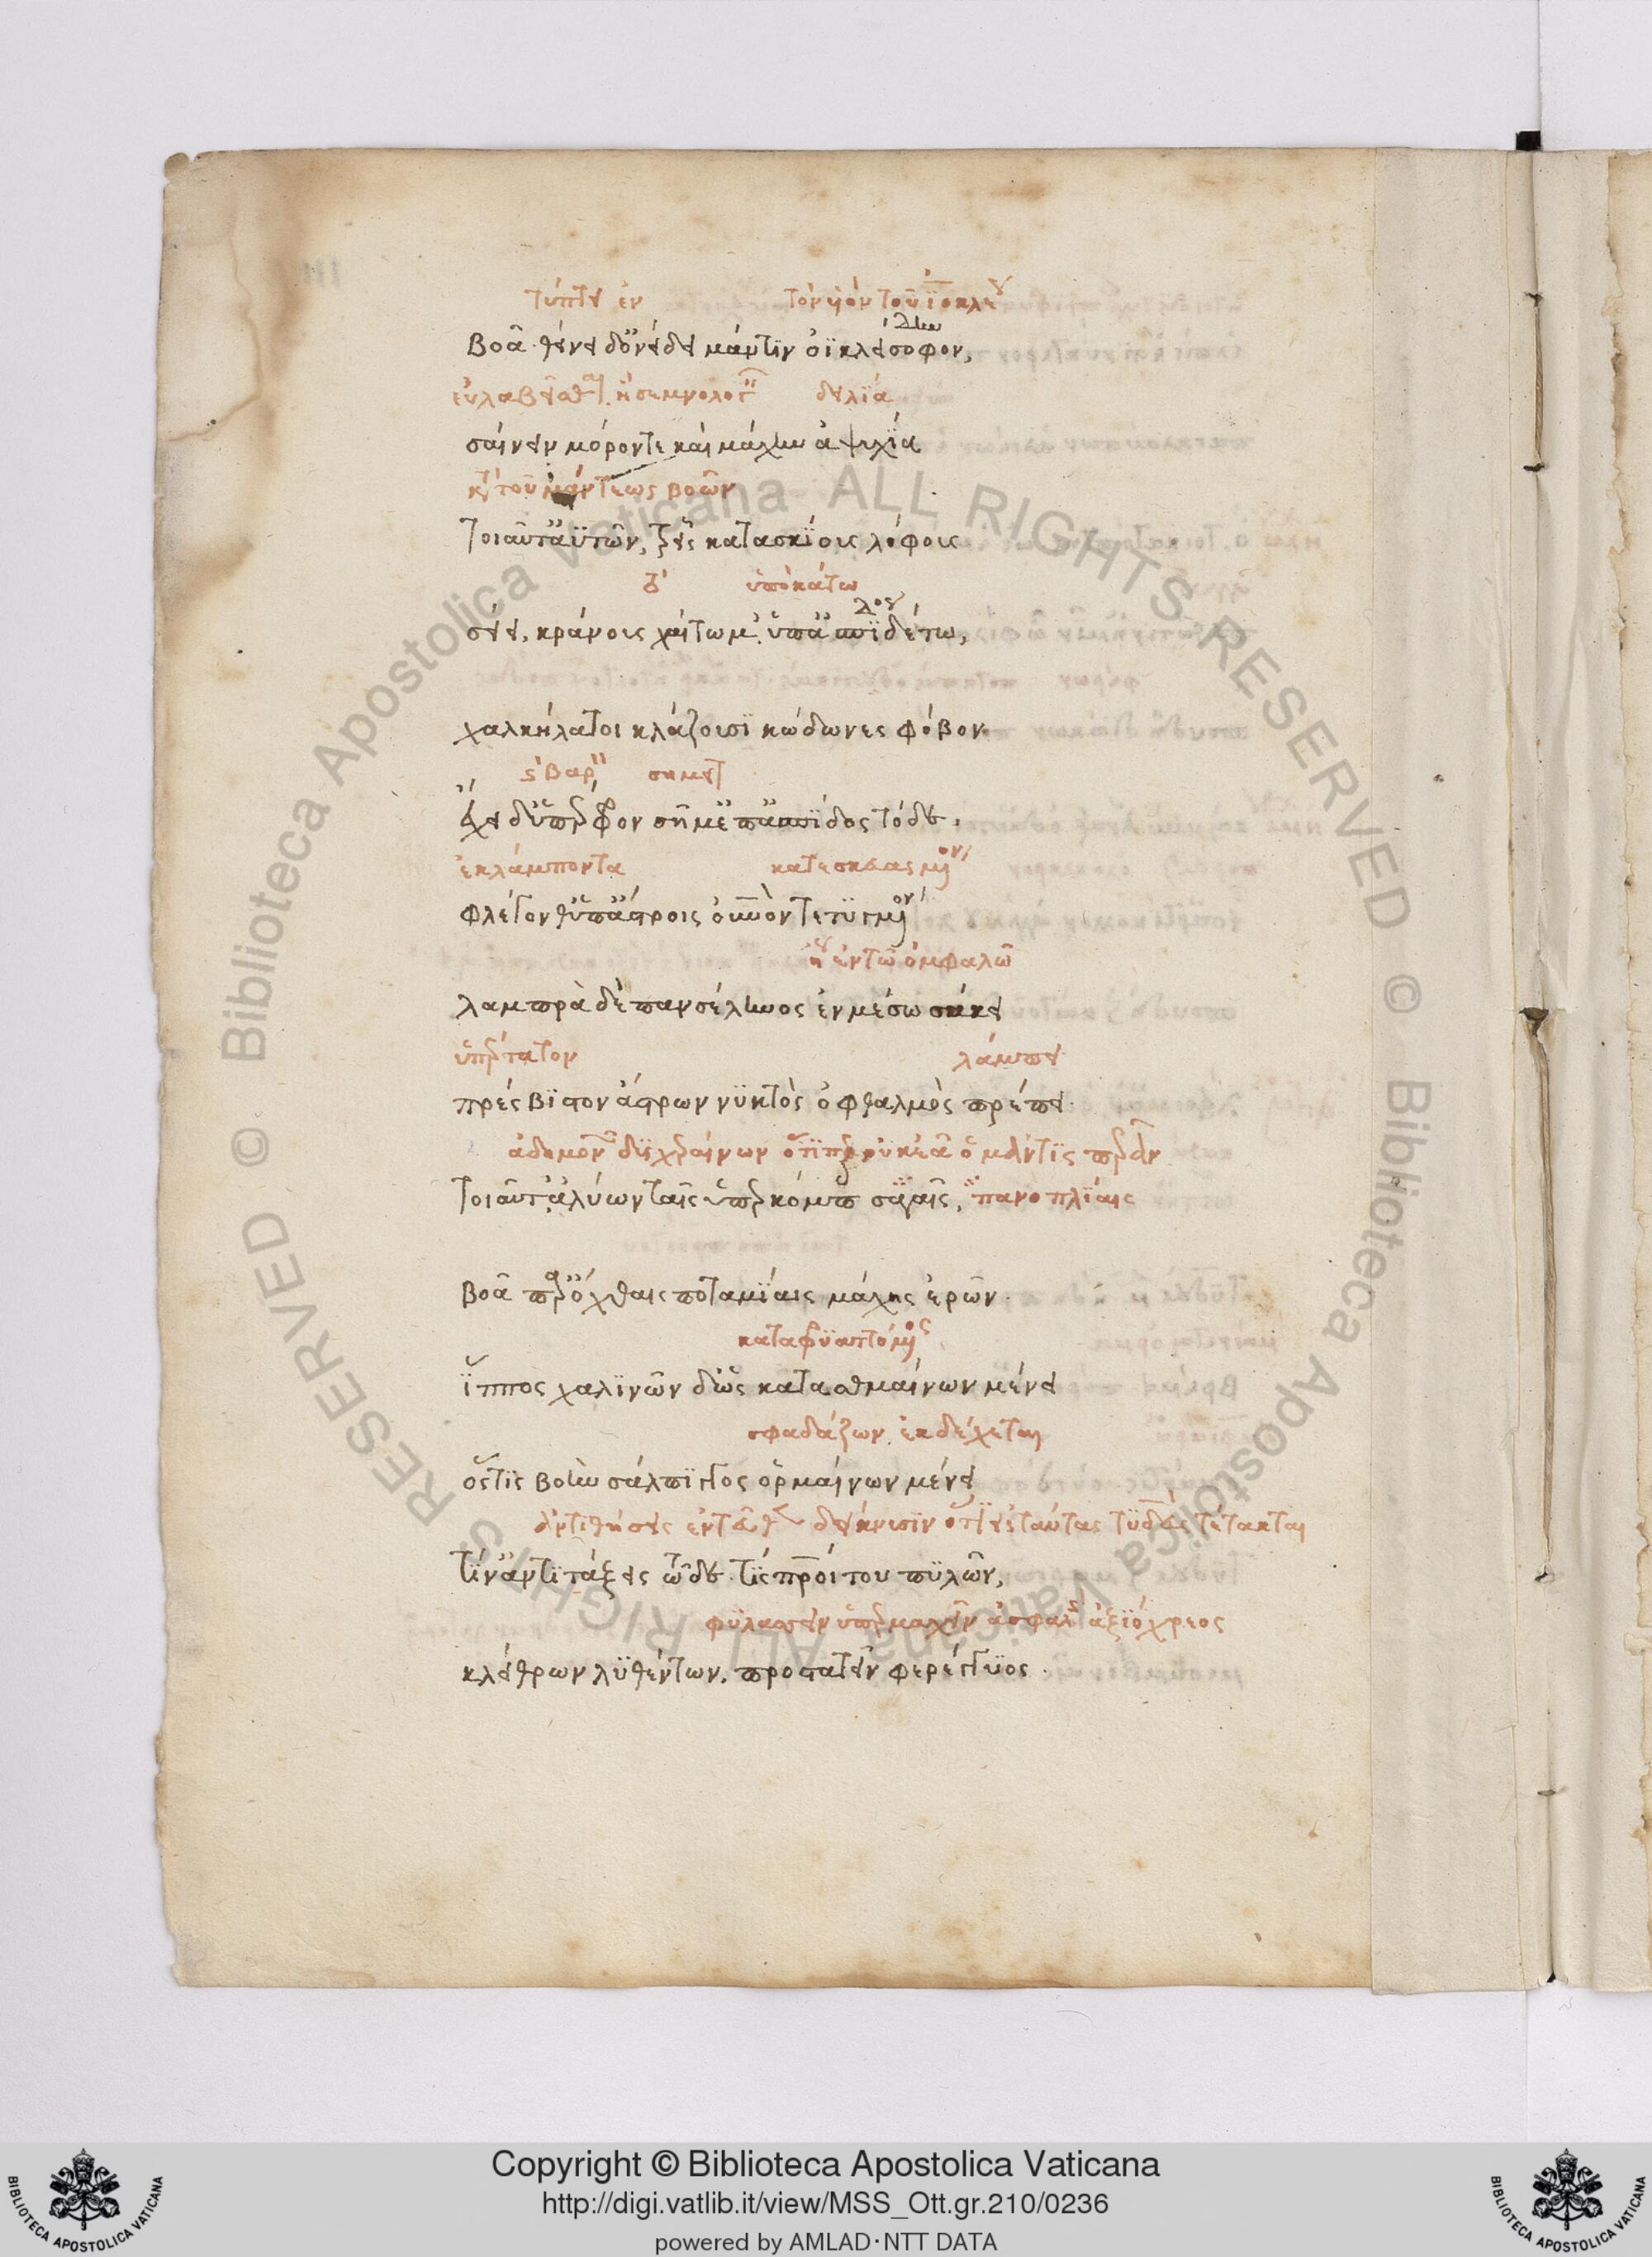 τύπτει ἐν τὸν υἱὸν τοῦ ἰοκλέου
βοᾷ· θείνει δ' ὀνείδει μάντιν οἰκλείδην σοφὸν,
εὐλαβεῖσθαι δειλία
σαίνειν μόρον τε καὶ μάχην ἀψυχίᾳ
τοῦ μάντεως βοῶν
τοιαῦτ' ἀϋτῶν, τρεῖς κατασκίους λόφους
ὑποκάτω
σείει, κράνους χαίτωμ'. ὑπ' ἀσπίδος δὲ τῷ,
χαλκήλατοι κλάζουσι κώδωνες φόβον
σημεῖον
ἔχει δ' ὑπέρφρον σῆμ' ἐπ' ἀσπίδος τόδε,
ἐκλάμποντα κατεσκευασμένον
φλέγονθ' ὑπ' ἄστροις οὐρανὸν τετυγμένον
ἐν τῷ ὀμφαλῷ
λαμπρὰ δὲ πανσέληνος ἐν μέσῳ σάκει
ὑπέρτατον λάμπει
πρέσβιστον ἄστρων νυκτὸς ὀφθαλμὸς πρέπει.
ἀδημονῶν δυσχεραίνων ὁ μάντις
τοιαῦτ' ἀλύων ταῖς ὑπερκόμποις σάγαις, πανοπλίαις
βοᾷ παρ' ὄχθαις ποταμίαις μάχης ἐρῶν.
καταφρυαττόμενος
ἵππος χαλινῶν δ' ὡς κατασθμαίνων μένει
σφαδάζων ἐκδέχεται
ὅστις βοὴν σάλπιγγος ὁρμαίνων μένει
ἀντιθήσεις ἐνταῦθα τέτακται
τίν' ἀντιτάξεις τῷδε. τίς προίτου πυλῶν,
φυλάσσειν ὑπερμαχεῖν ἀσφαλὴς ἀξιόχρεος
κλείθρων λυθέντων, προστατεῖν φερέγγυος.
Copyright © Biblioteca Apostolica Vaticana
http://digi.vatlib.it/view/MSS_Ott.gr.210/0236
powered by AMLAD·NTT DATA
BIBLIOTECA APOSTOLICA VATICANA
BIBLIOTECA APOSTOLICA VATICANA
© Biblioteca Apostolica Vaticana ALL RIGHTS RESERVED © Biblioteca Apostolica Vaticana ALL RIGHTS RESERVED